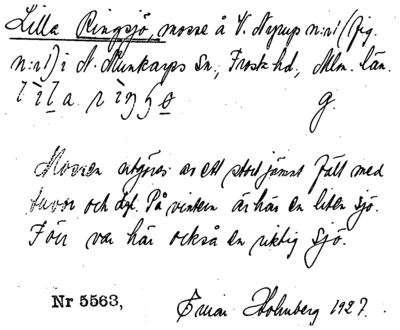 Lilla Ringsjö, mosse å V. Nyrup n:r 1 (fig.
n:r 1) i N. Munkarps sn, Frosta hd, Mlm. län.
g.
Mossen utgöres av ett stort jämnt fält med
tuvor och dyl. På vintern är här en liten sjö.
Förr var här också en riktig sjö.
Nr 5563, Einar Holmberg 1927.